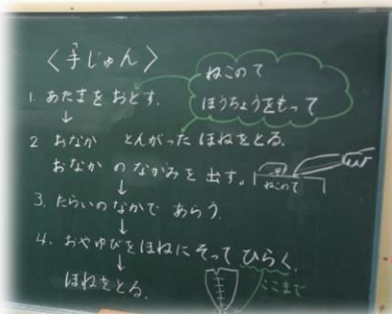 〈手じゅん〉
ねこのて
ほうちょうをもって
1. あたまをおとす.
↓
2 おなか とんがった ほねをとる.
おなか のなかみを出す。
ねこのて
↓
3. たらいのなかで あらう.
↓
4. おやゆびをほねにそって ひらく.
↓
ここまで
ほねをとる.